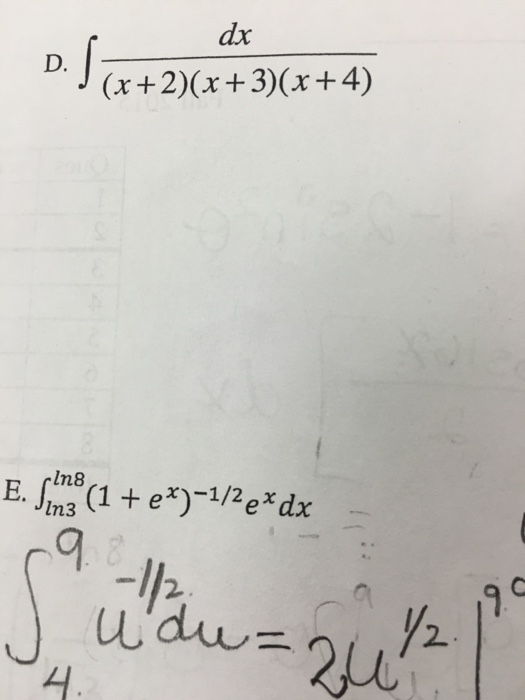 D. ∫ dx / (x+2)(x+3)(x+4)
E. ∫_{ln3}^{ln8} (1 + e^x)^{-1/2} e^x dx
∫_{4.}^{9.} u^{-1/2.} du = 2u^{1/2.} |^{9.}